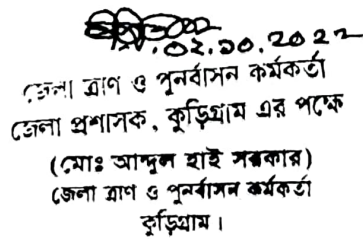 ০২.১০.২০২২
জেলা ত্রাণ ও পুনর্বাসন কর্মকর্তা
জেলা প্রশাসক, কুড়িগ্রাম এর পক্ষে
(মোঃ আব্দুল হাই সরকার)
জেলা ত্রাণ ও পুনর্বাসন কর্মকর্তা
কুড়িগ্রাম।